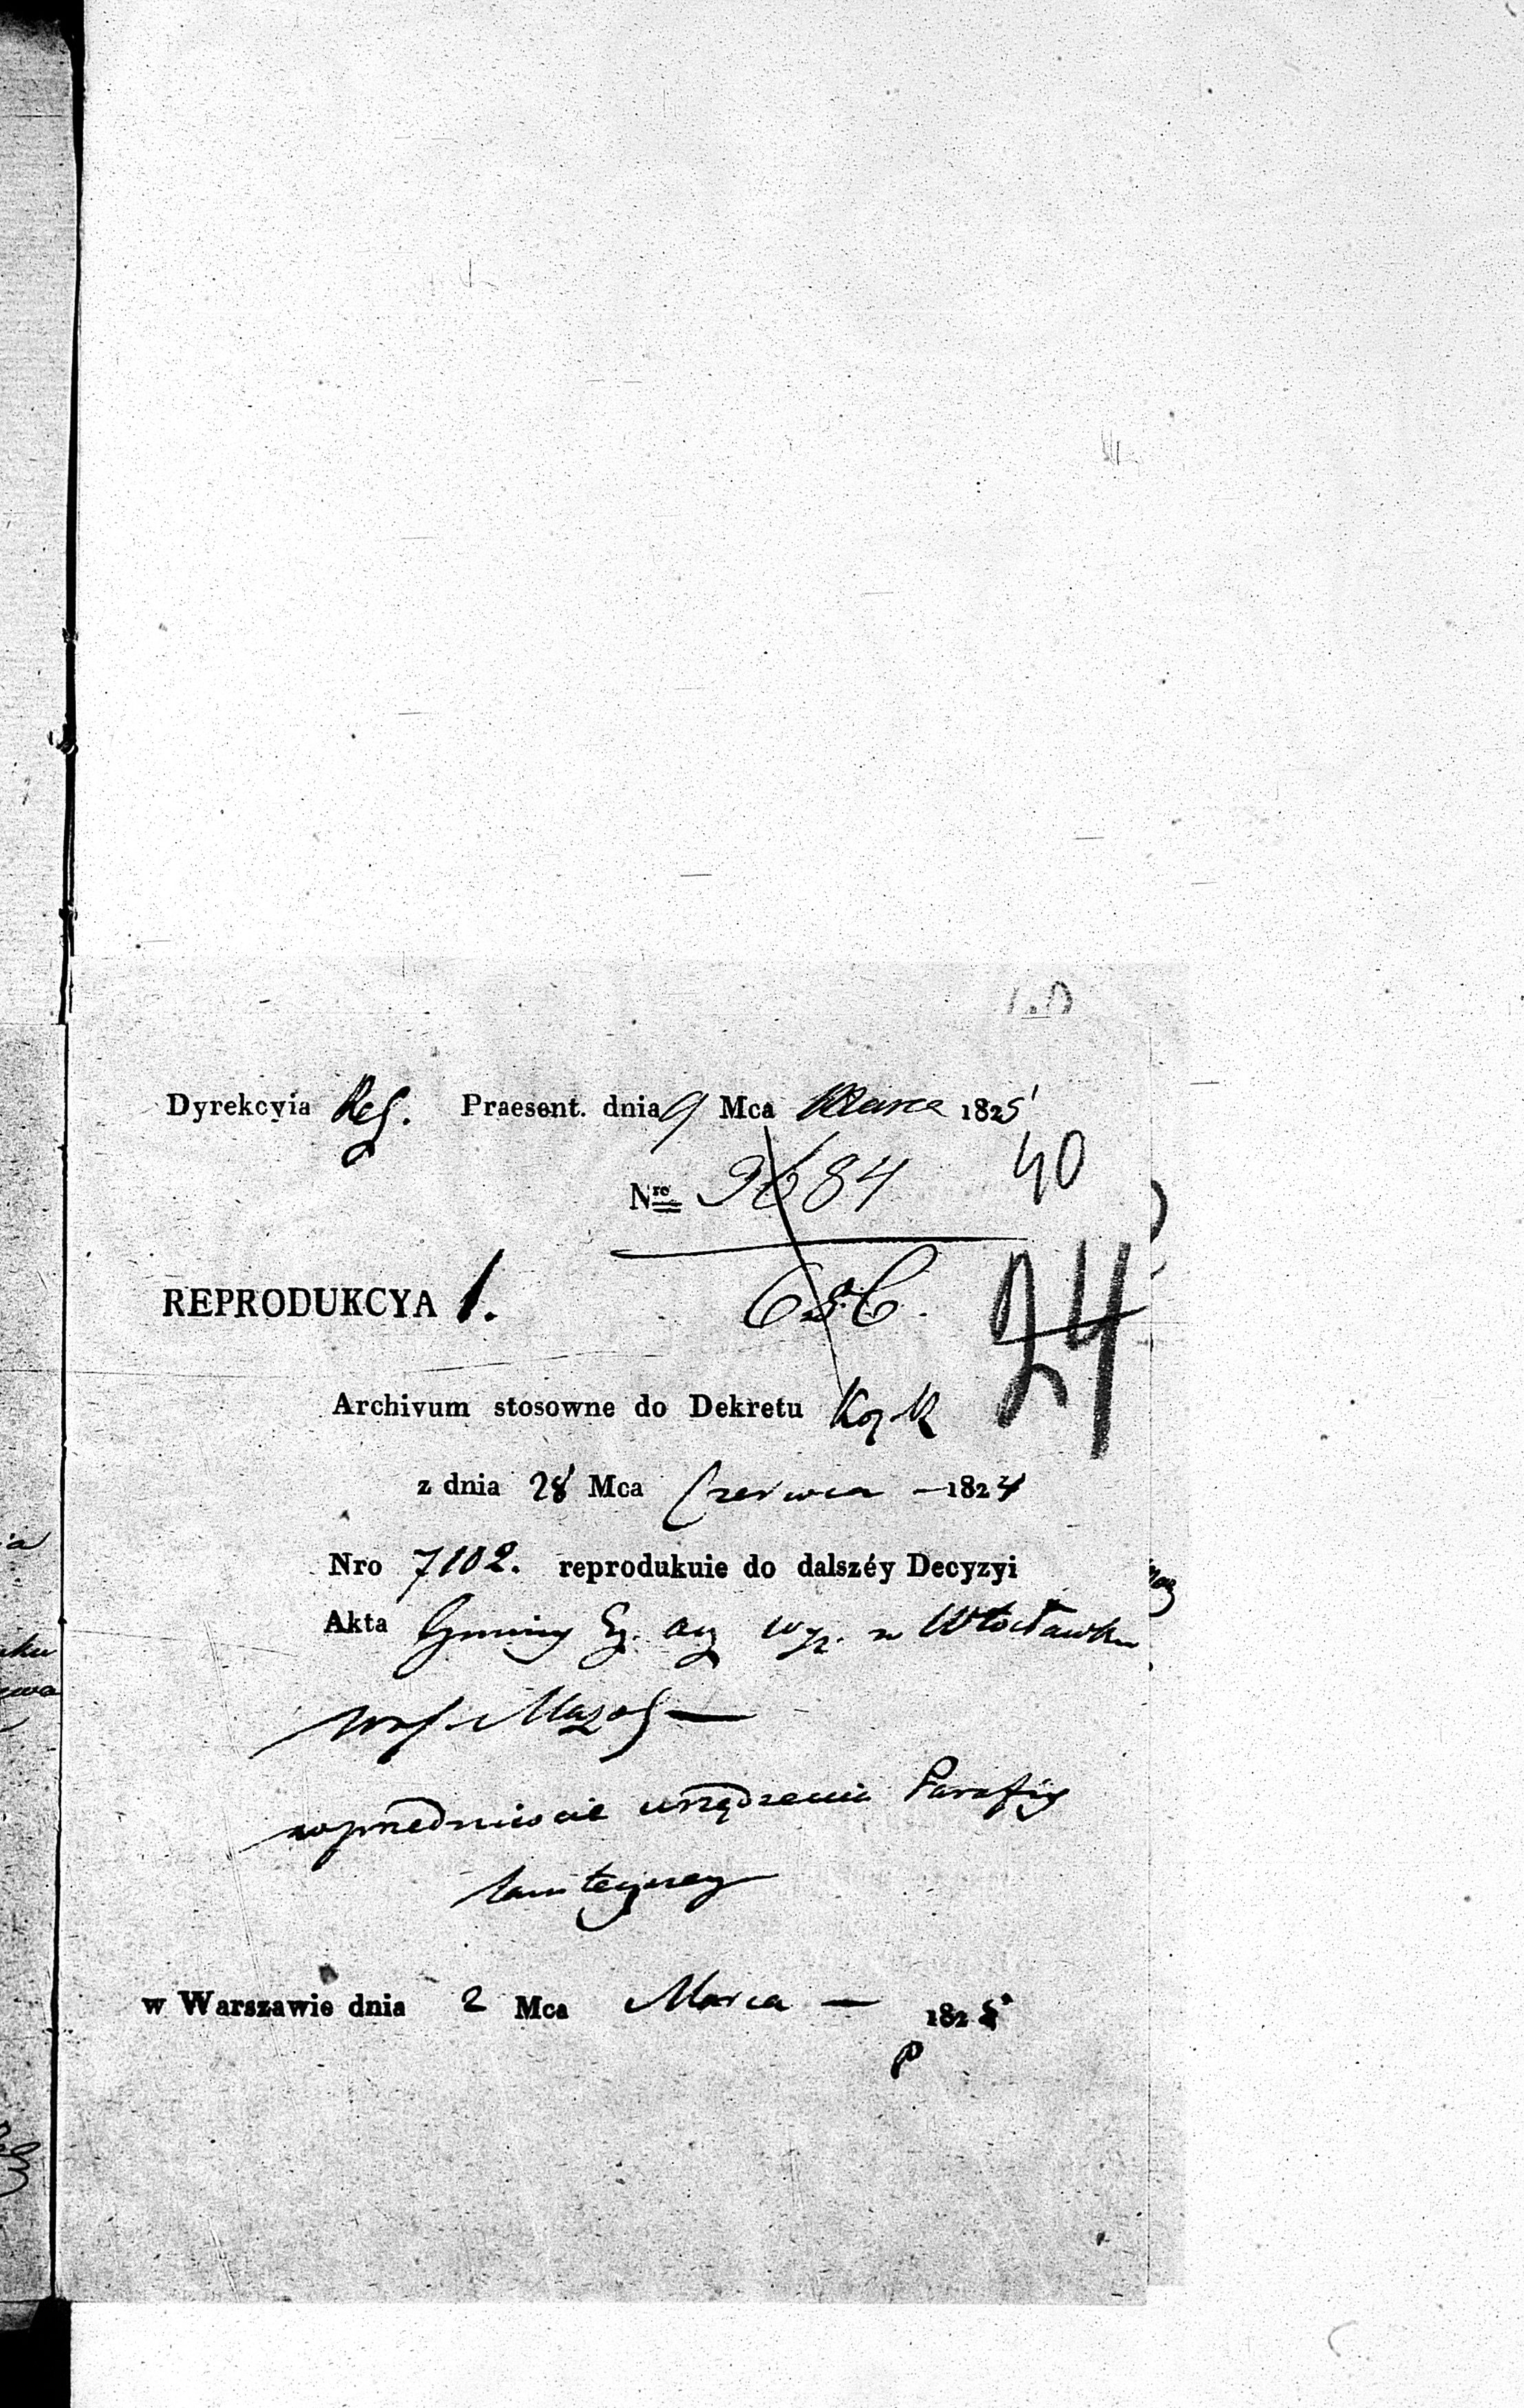 Dyrekcyia Rel. Praesent. dnia 9 Mca Marca 1825
40
Nro 9684
REPRODUKCYA 1.
24
Archivum stosowne do Dekretu
z dnia 28 Mca Czerwca – 1824
Nro 7102. reprodukuie do dalszéy Decyzyi
Akta Gminy Ew. Aug. Wyz. w Włocławku
Maz
wprzedmiocie urządzenia Parafii
tamteyszey
w Warszawie dnia 2 Mca Marca – 1825